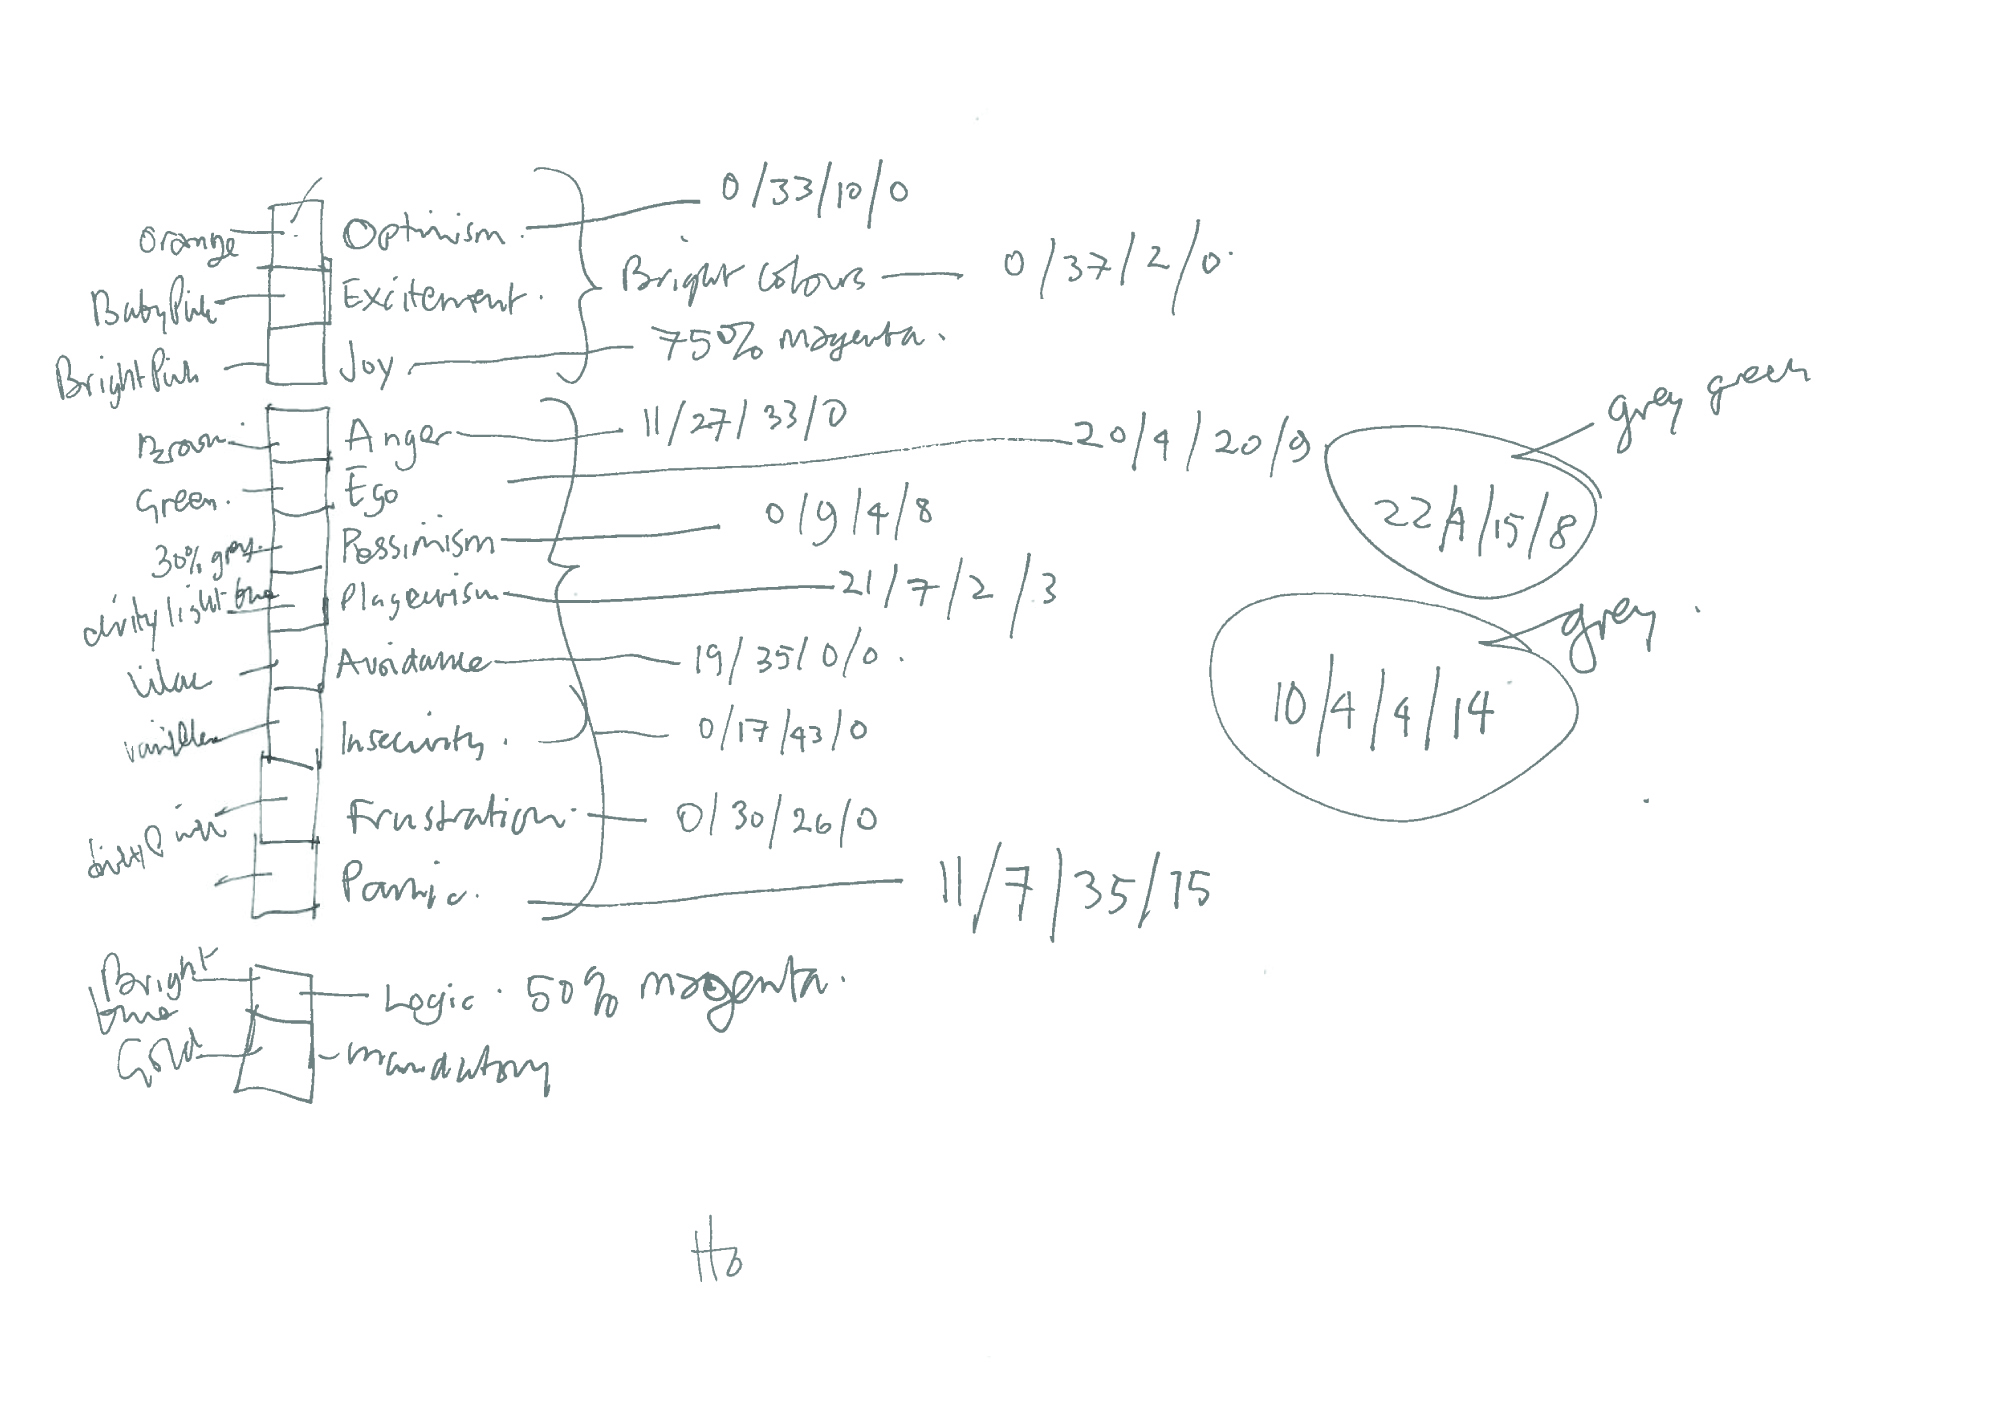 Orange Optimism. 0/33/10/0
Baby Pink Excitement. Bright Colours 0/37/2/0.
Bright Pink Joy 75% magenta.
Brown. Anger 11/27/33/0
Green. Ego 20/4/20/9
grey green
22/4/15/8
30% grey. Pessimism 0/9/4/8
dirty light blue Plageurism 21/7/2/3
grey.
10/4/4/14
Lilac Avoidance 19/35/0/0.
vanilla Insecurity. 0/17/43/0
Frustration. 0/30/26/0
Panic. 11/7/35/15
Bright
blue
Logic. 50% magenta.
Gold mandatory